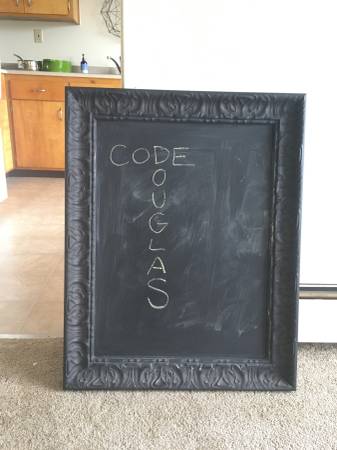 CODE
O
U
G
L
A
S